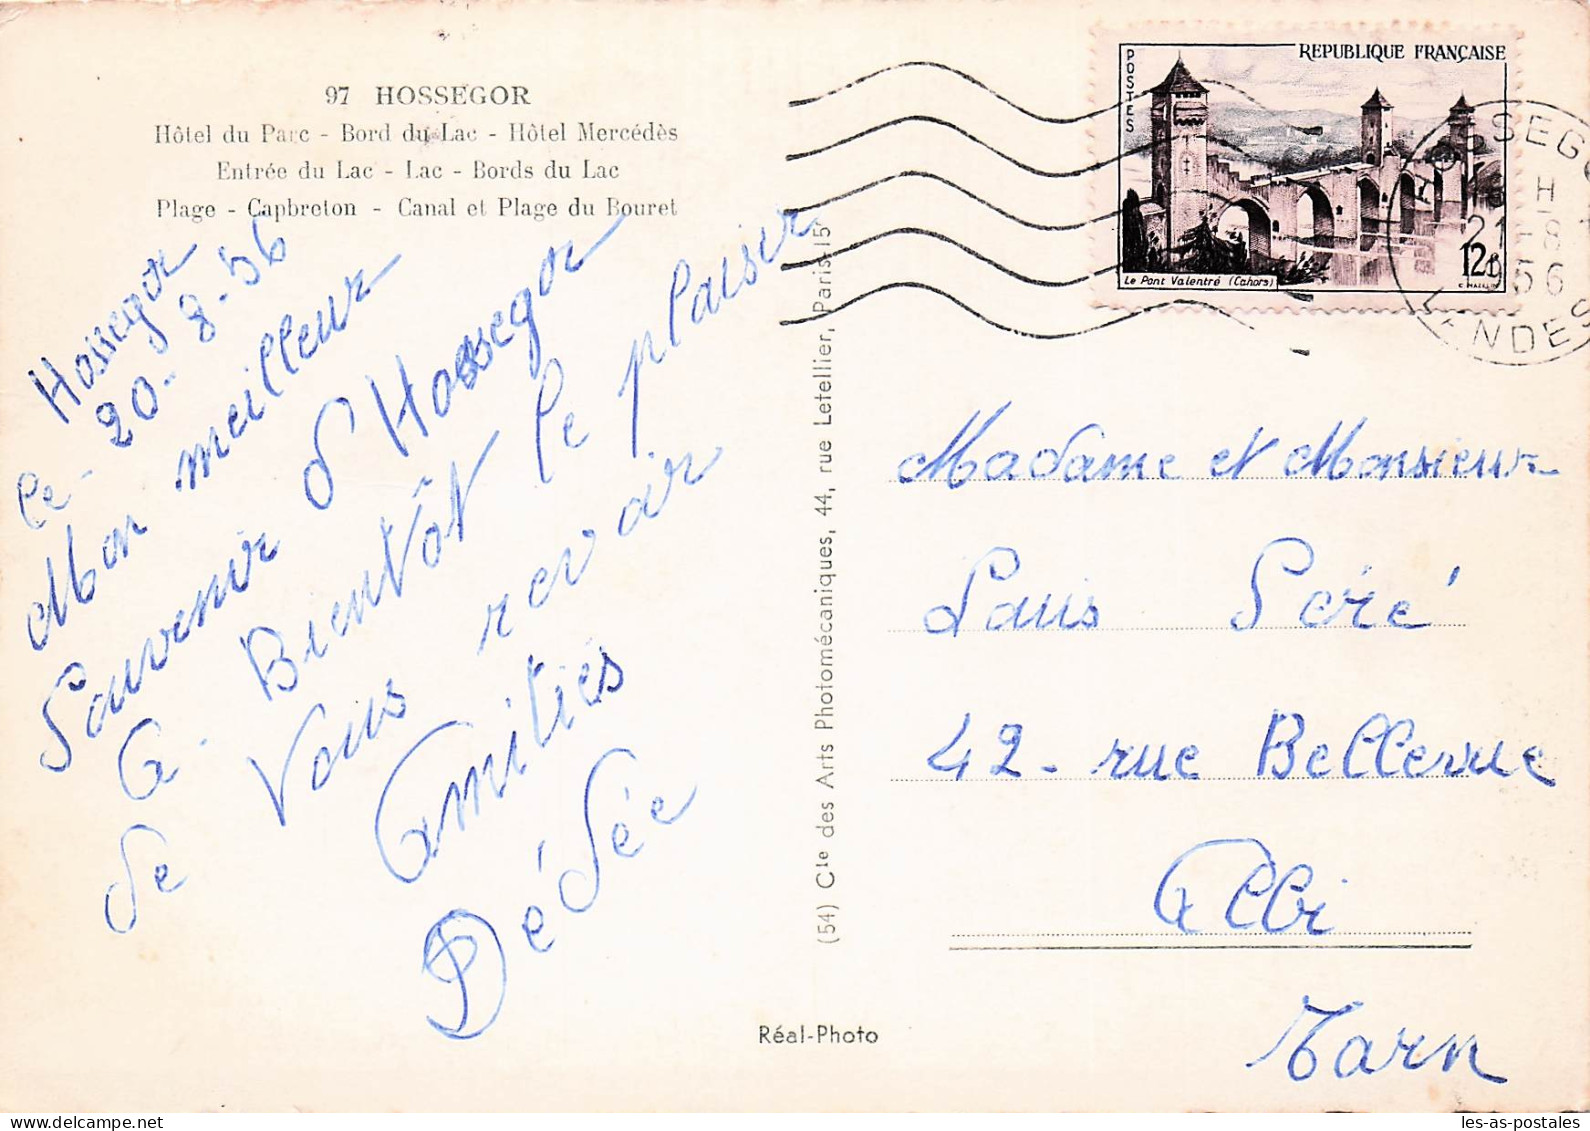 97 HOSSEGOR
Hôtel du Parc - Bord du Lac - Hôtel Mercédès
Entrée du Lac - Lac - Bords du Lac
Plage - Capbreton - Canal et Plage du Bouret
Hossegor
le - 20 - 8 - 56
Mon meilleur
Souvenir d'Hossegor
A. Bientôt le plaisir
de Vous revoir
Amitiés
Dédée
(54) Cie des Arts Photomécaniques, 44, rue Letellier, Paris-15e
Réal-Photo
POSTES
REPUBLIQUE FRANÇAISE
12f
Le Pont Valentré (Cahors)
HOSSEGOR
H
21 -8
1956
LANDES
Madame et Monsieur
Louis Séré
42 - rue Bellevue
Albi
Tarn
les-as-postales